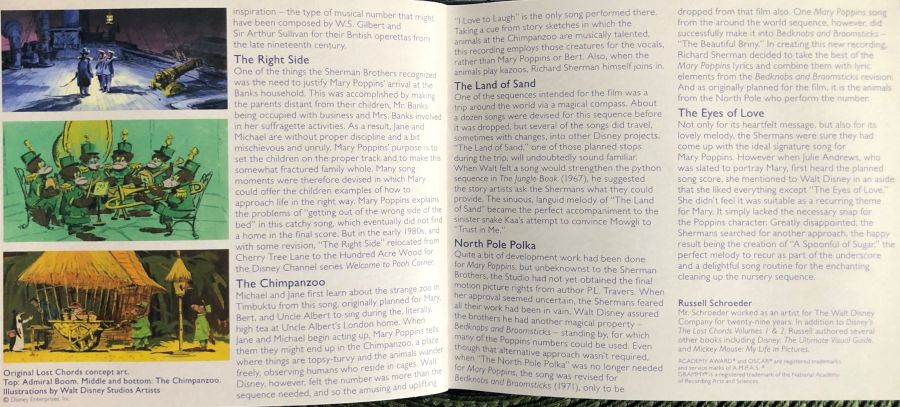 Original Lost Chords concept art.
Top: Admiral Boom. Middle and bottom: The Chimpanzoo.
Illustrations by Walt Disney Studios Artists
© Disney Enterprises, Inc.
inspiration – the type of musical number that might
have been composed by W.S. Gilbert and
Sir Arthur Sullivan for their British operettas from
the late nineteenth century.
The Right Side
One of the things the Sherman Brothers recognized
was the need to justify Mary Poppins' arrival at the
Banks household. This was accomplished by making
the parents distant from their children, Mr. Banks
being occupied with business and Mrs. Banks involved
in her suffragette activities. As a result, Jane and
Michael are without proper discipline and a bit
mischievous and unruly. Mary Poppins' purpose is to
set the children on the proper track and to make this
somewhat fractured family whole. Many song
moments were therefore devised in which Mary
could offer the children examples of how to
approach life in the right way. Mary Poppins explains
the problems of "getting out of the wrong side of the
bed" in this catchy song, which eventually did not find
a home in the final score. But in the early 1980s, and
with some revision, "The Right Side" relocated from
Cherry Tree Lane to the Hundred Acre Wood for
the Disney Channel series Welcome to Pooh Corner.
The Chimpanzoo
Michael and Jane first learn about the strange zoo in
Timbuktu from this song, originally planned for Mary,
Bert, and Uncle Albert to sing during the, literally,
high tea at Uncle Albert's London home. When
Jane and Michael begin acting up, Mary Poppins tells
them they might end up in the Chimpanzoo, a place
where things are topsy-turvy and the animals wander
freely, observing humans who reside in cages. Walt
Disney, however, felt the number was more than the
sequence needed, and so the amusing and uplifting
"I Love to Laugh" is the only song performed there.
Taking a cue from story sketches in which the
animals at the Chimpanzoo are musically talented,
this recording employs those creatures for the vocals,
rather than Mary Poppins or Bert. Also, when the
animals play kazoos, Richard Sherman himself joins in.
The Land of Sand
One of the sequences intended for the film was a
trip around the world via a magical compass. About
a dozen songs were devised for this sequence before
it was dropped, but several of the songs did travel,
sometimes with changes, into other Disney projects.
"The Land of Sand," one of those planned stops
during the trip, will undoubtedly sound familiar.
When Walt felt a song would strengthen the python
sequence in The Jungle Book (1967), he suggested
the story artists ask the Shermans what they could
provide. The sinuous, languid melody of "The Land
of Sand" became the perfect accompaniment to the
sinister snake Kaa's attempt to convince Mowgli to
"Trust in Me."
North Pole Polka
Quite a bit of development work had been done
for Mary Poppins, but unbeknownst to the Sherman
Brothers, the Studio had not yet obtained the final
motion picture rights from author P.L. Travers. When
her approval seemed uncertain, the Shermans feared
all their work had been in vain. Walt Disney assured
the brothers he had another magical property –
Bedknobs and Broomsticks – standing by, for which
many of the Poppins numbers could be used. Even
though that alternative approach wasn't required,
when "The North Pole Polka" was no longer needed
for Mary Poppins, the song was revised for
Bedknobs and Broomsticks (1971), only to be
dropped from that film also. One Mary Poppins song
from the around the world sequence, however, did
successfully make it into Bedknobs and Broomsticks –
"The Beautiful Briny." In creating this new recording,
Richard Sherman decided to take the best of the
Mary Poppins lyrics and combine them with lyric
elements from the Bedknobs and Broomsticks revision.
And as originally planned for the film, it is the animals
from the North Pole who perform the number.
The Eyes of Love
Not only for its heartfelt message, but also for its
lovely melody, the Shermans were sure they had
come up with the ideal signature song for
Mary Poppins. However when Julie Andrews, who
was slated to portray Mary, first heard the planned
song score, she mentioned to Walt Disney in an aside
that she liked everything except "The Eyes of Love."
She didn't feel it was suitable as a recurring theme
for Mary. It simply lacked the necessary snap for
the Poppins character. Greatly disappointed, the
Shermans searched for another approach, the happy
result being the creation of "A Spoonful of Sugar," the
perfect melody to recur as part of the underscore
and a delightful song routine for the enchanting
cleaning up the nursery sequence.
Russell Schroeder
Mr. Schroeder worked as an artist for The Walt Disney
Company for twenty-nine years. In addition to Disney's
The Lost Chords Volumes 1 & 2, Russell authored several
other books including Disney: The Ultimate Visual Guide,
and Mickey Mouse: My Life in Pictures.
ACADEMY AWARD® and OSCAR® are registered trademarks
and service marks of A.M.P.A.S. ®
GRAMMY® is a registered trademark of the National Academy
of Recording Arts and Sciences.